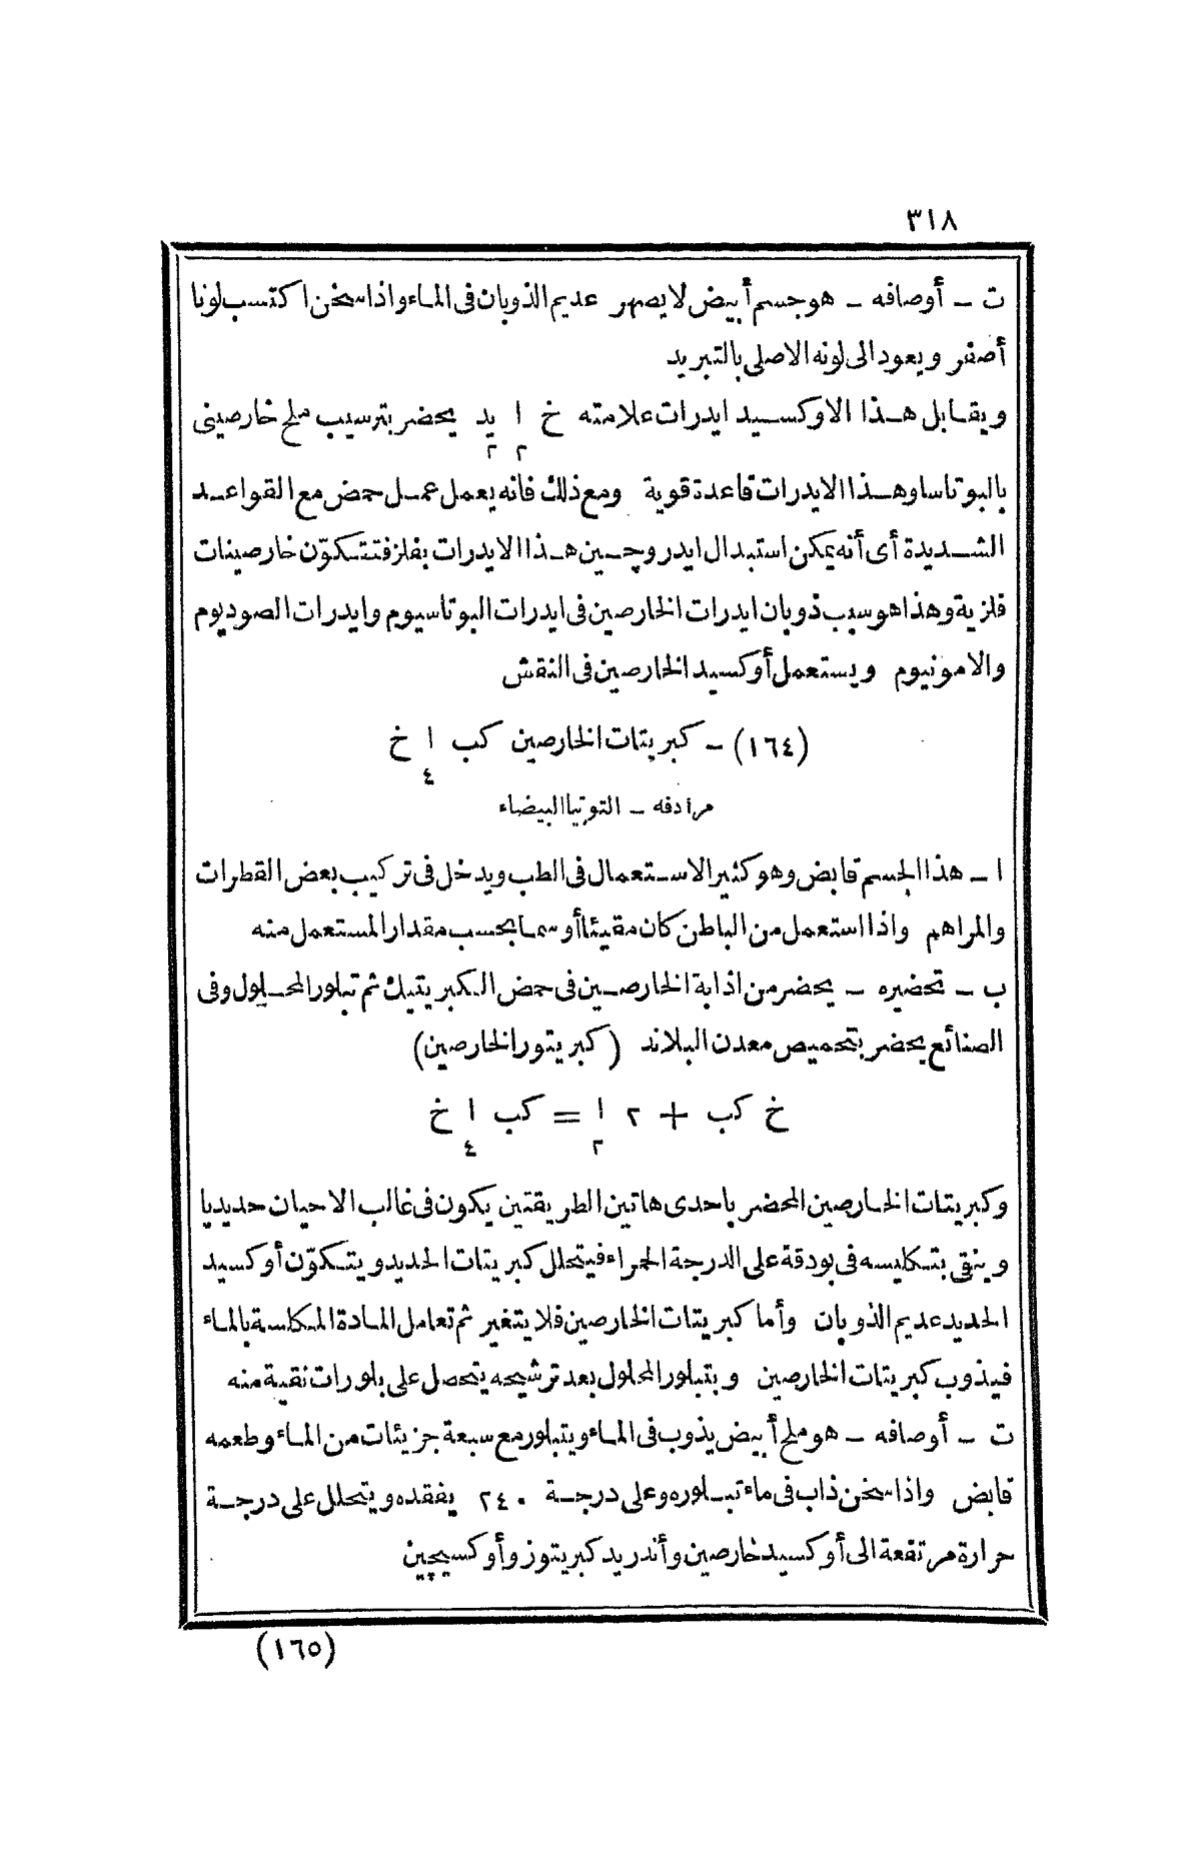 ٣١٨
ت ـ أوصافه ـ هو جسم أبيض لا يصهر عديم الذوبان فى الماء واذا سخن اكتسب لونا
أصفر ويعود الى لونه الاصلى بالتبريد
ويقابل هذا الاوكسيد ايدرات علامته خ ا يد يحضر بترسيب ملح خارصينى
٢ ٢
بالبوتاسا وهذا الايدرات قاعدة قوية ومع ذلك فانه يعمل عمل حمض مع القواعد
الشديدة أى أنه يمكن استبدال ايدروچين هذا الايدرات بفلز فتتكوّن خارصينات
فلزية وهذا هو سبب ذوبان ايدرات الخارصين فى ايدرات البوتاسيوم وايدرات الصوديوم
والامونيوم ويستعمل أوكسيد الخارصين فى النقش
(١٦٤) ـ كبريتات الخارصين كب ا خ
٤
مرادفه ـ التوتيا البيضاء
ا ـ هذا الجسم قابض وهو كثير الاستعمال فى الطب ويدخل فى تركيب بعض القطرات
والمراهم واذا استعمل من الباطن كان مقيئا أو سما بحسب مقدار المستعمل منه
ب ـ تحضيره ـ يحضر من اذابة الخارصين فى حمض الكبريتيك ثم تبلور المحلول وفى
الصنائع يحضر بتحميص معدن البلاند (كبريتور الخارصين)
خ كب + ٢ ا = كب ا خ
٢ ٤
وكبريتات الخارصين المحضر باحدى هاتين الطريقتين يكون فى غالب الاحيان حديديا
وينقى بتكليسه فى بودقة على الدرجة الحمراء فيتحلل كبريتات الحديد ويتكوّن أوكسيد
الحديد عديم الذوبان وأما كبريتات الخارصين فلا يتغير ثم تعامل المادة المكلسة بالماء
فيذوب كبريتات الخارصين وبتبلور المحلول بعد ترشيحه يتحصل على بلورات نقية منه
ت ـ أوصافه ـ هو ملح أبيض يذوب فى الماء ويتبلور مع سبعة جزيئات من الماء وطعمه
قابض واذا سخن ذاب فى ماء تبلوره وعلى درجة ٢٤٠ يفقده ويتحلل على درجة
حرارة مرتفعة الى أوكسيد خارصين وأندريد كبريتوز وأوكسيچين
(١٦٥)